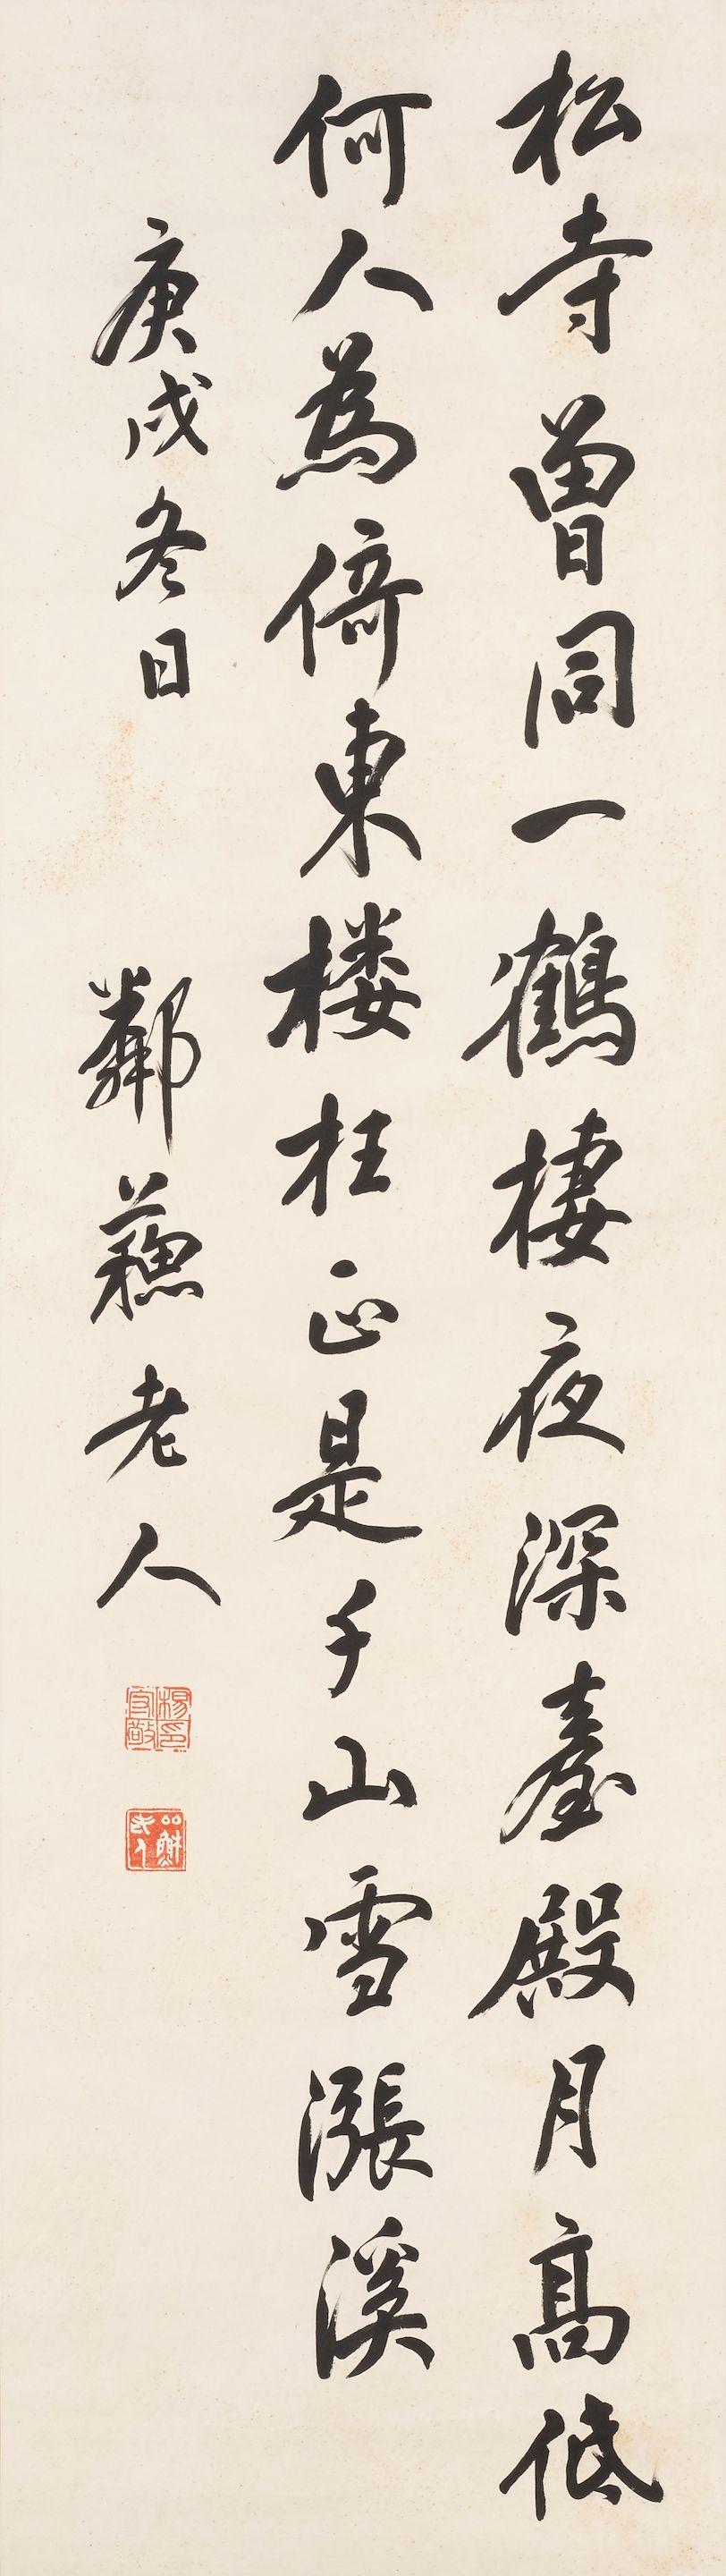 松寺曾同一鶴棲夜深臺殿月高低
何人為倚東楼柱正是千山雪漲溪
庚戌冬日 鄰蘇老人
楊印守敬